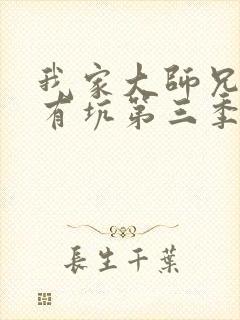 我家大師兄
有坑第三季
長生千葉